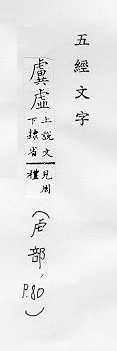 五經文字
虡上說文下隸省見周禮（虍部，P.80）